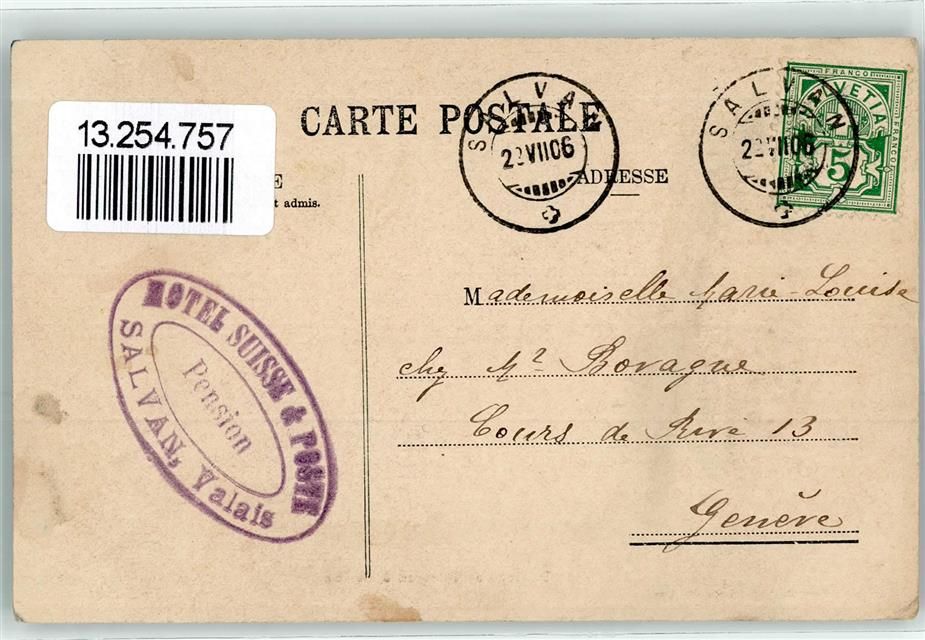 13.254.757
CARTE POSTALE
SALVAN
23 VII 06
SALVAN
23 VII 06
FRANCO
HELVETIA
FRANCO
5
E
t admis.
ADRESSE
HOTEL SUISSE & POSTE
Pension
SALVAN, Valais
Mademoiselle Marie-Louise
chez Mr. Bovagne
Cours de Rive 13
Genève